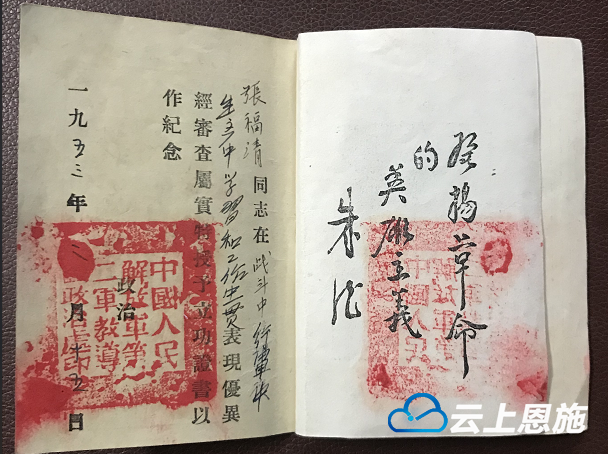 發揚革命
的
英雄主義
朱德
張福清同志在战斗中行軍中
生产中学習和工作中一贯表現優異
經審查屬實特授予立功證書以
作紀念
政治
一九五三年二月十五日
中國人民
解放軍第
二軍教導
云上恩施